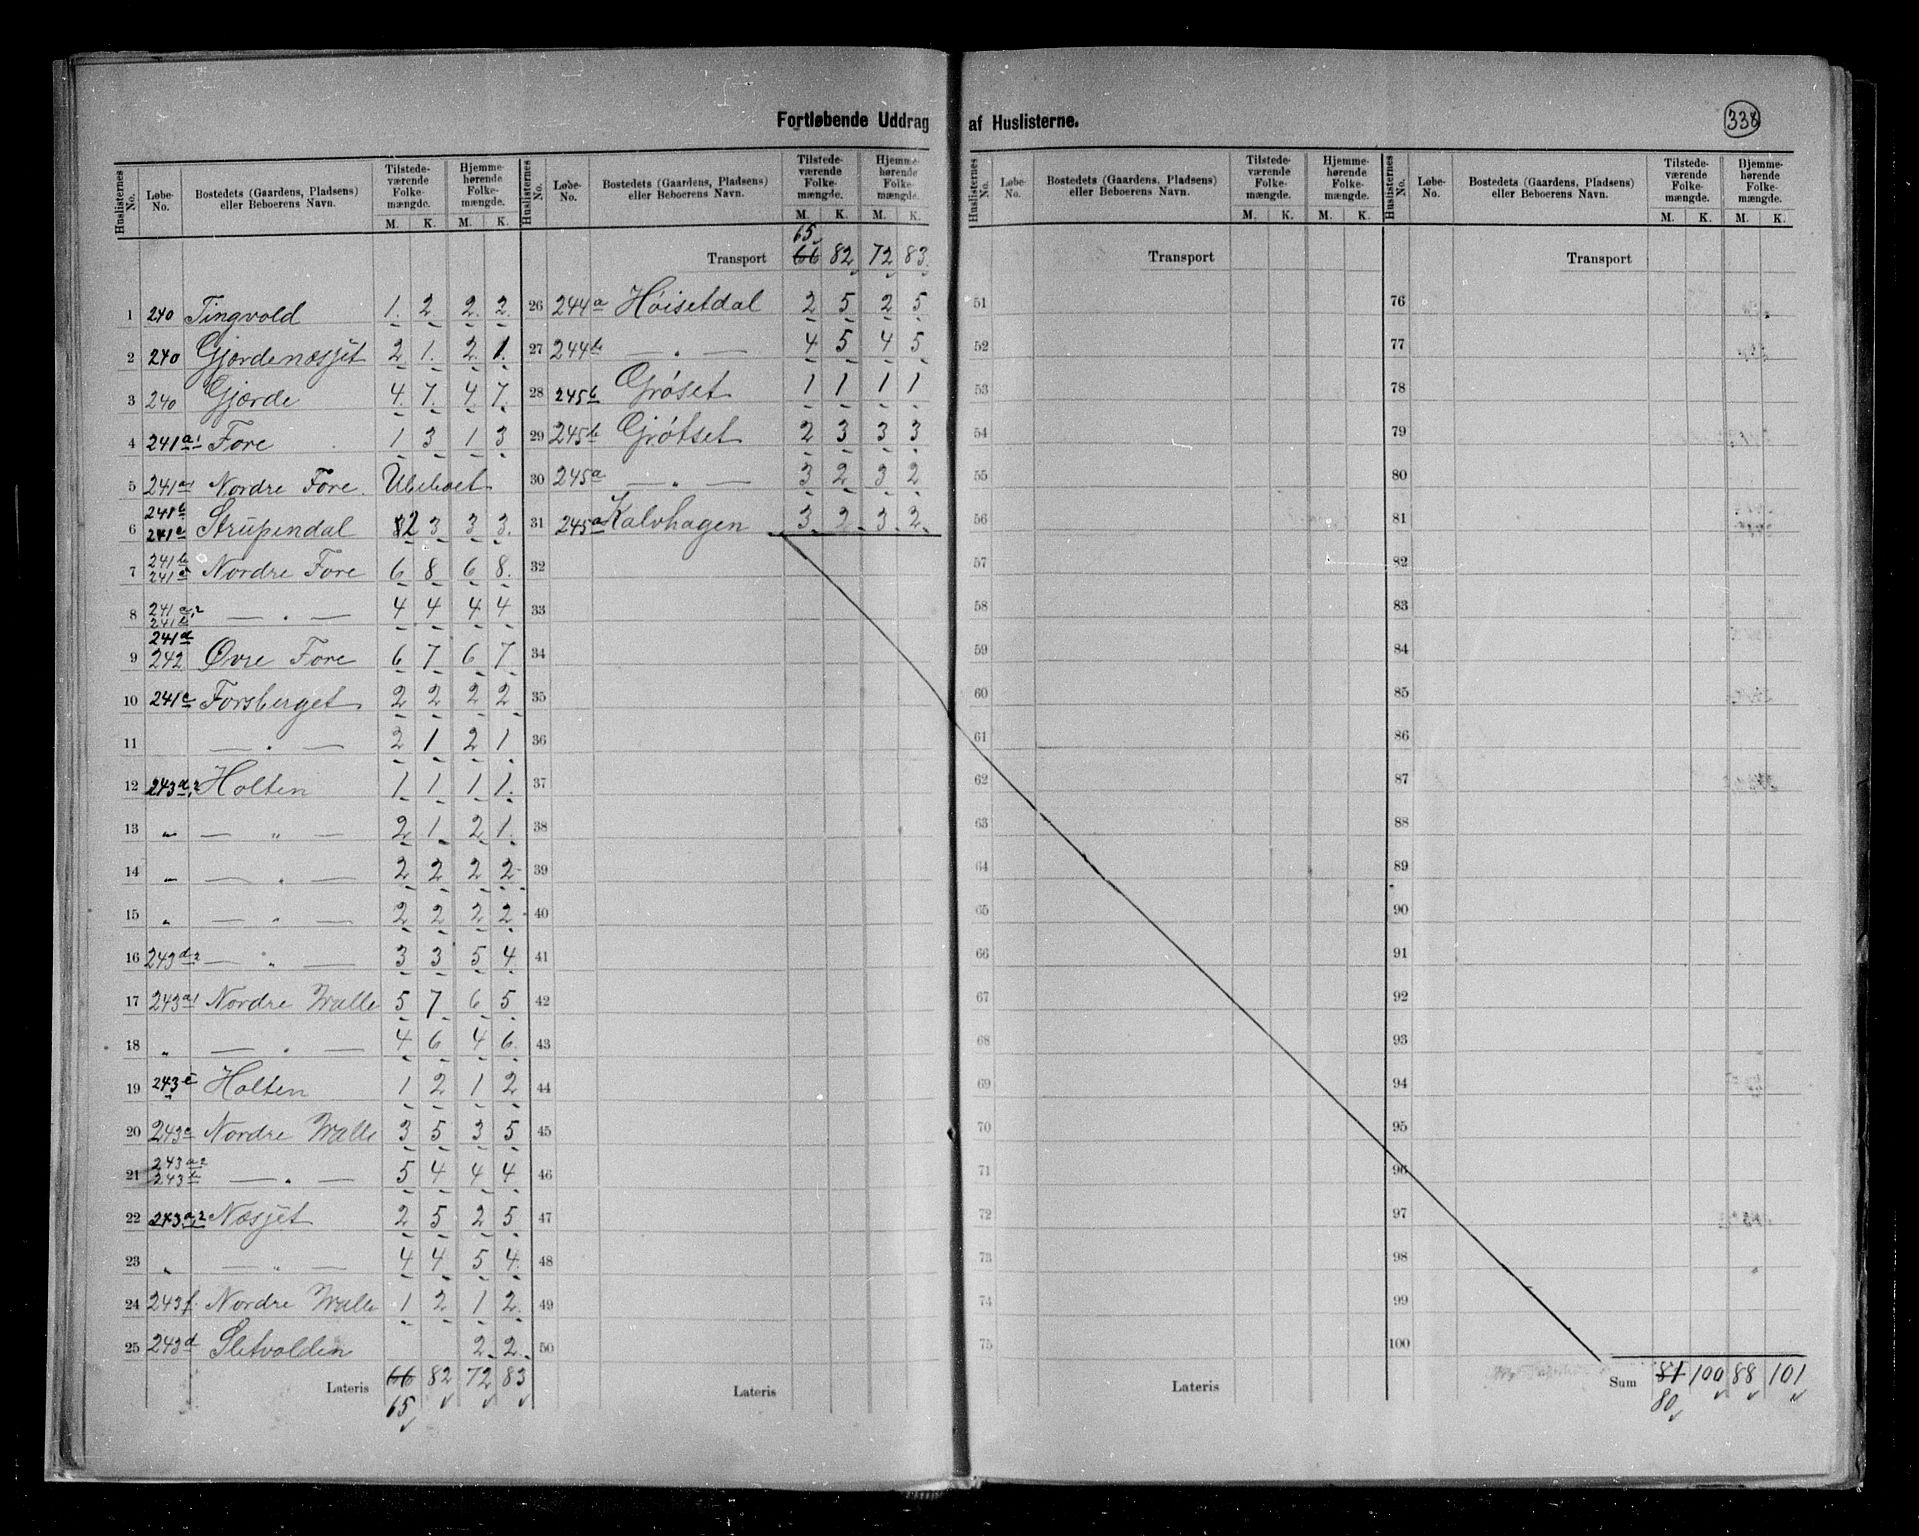 Fortløbende Uddrag af Huslisterne.
338
Huslisternes No. Løbe-No. Bostedets (Gaardens, Pladsens) eller Beboerens Navn. Tilstedeværende Folkemængde. M. K. Hjemmehørende Folkemængde. M. K.
1 240 Tingvold 1. 2. 2. 2.
2 240 Gjørdenæsjet 2 1. 2. 1.
3 240 Gjærde 4. 7. 4. 7.
4 241a1 Fore 1 3 1 3
5 241a1 Nordre Fore. Ubeboet
6 241b 241c Strupendal 2 3 3 3.
7 241b 241a Nordre Fore 6 8 6 8.
8 241a,2 241b — „ — 4 4 4 4
9 241d 242 Øvre Fore 6 7 6 7
10 241c Forsberget 2 2 2 2
11 — „ — 2 1 2 1
12 243a,2 Holten 1 1 1 1.
13 „ — „ — 2 1 2 1.
14 „ — „ — 2 2 2 2
15 „ — „ — 2 2 2 2
16 243d2 — „ — 3 3 5 4
17 243a1 Nordre Walle 5 7 6 5
18 „ — „ — 4 6 4 6.
19 243c Holten 1 2 1 2
20 243a Nordre Walle 3 5 3 5
21 243a2 243b — „ — 5 4 4 4
22 243a,2 Næsjet 2 5 2 5
23 „ — „ — 4 4 5 4.
24 243f. Nordre Walle 1 2 1 2.
25 243d Sletvolden 2 2
Lateris 66 82 72 83
65
Huslisternes No. Løbe-No. Bostedets (Gaardens, Pladsens) eller Beboerens Navn. Tilstedeværende Folkemængde. M. K. Hjemmehørende Folkemængde. M. K.
65
Transport 66 82 72 83.
26 244a Høisetdal 2 5 2 5
27 244b — „ — 4 5 4 5
28 245b Grøset 1 1 1 1
29 245b Grøtset 2 3 3 3
30 245a — „ — 3 2 3 2
31 245a Kalvhagen 3 2 3 2
32
33
34
35
36
37
38
39
40
41
42
43
44
45
46
47
48
49
50
Lateris
Huslisternes No. Løbe-No. Bostedets (Gaardens, Pladsens) eller Beboerens Navn. Tilstedeværende Folkemængde. M. K. Hjemmehørende Folkemængde. M. K.
Transport
51
52
53
54
55
56
57
58
59
60
61
62
63
64
65
66
67
68
69
70
71
72
73
74
75
Lateris
Huslisternes No. Løbe-No. Bostedets (Gaardens, Pladsens) eller Beboerens Navn. Tilstedeværende Folkemængde. M. K. Hjemmehørende Folkemængde. M. K.
Transport
76
77
78
79
80
81
82
83
84
85
86
87
88
89
90
91
92
93
94
95
96
97
98
99
100
Sum 81 100 88 101
80